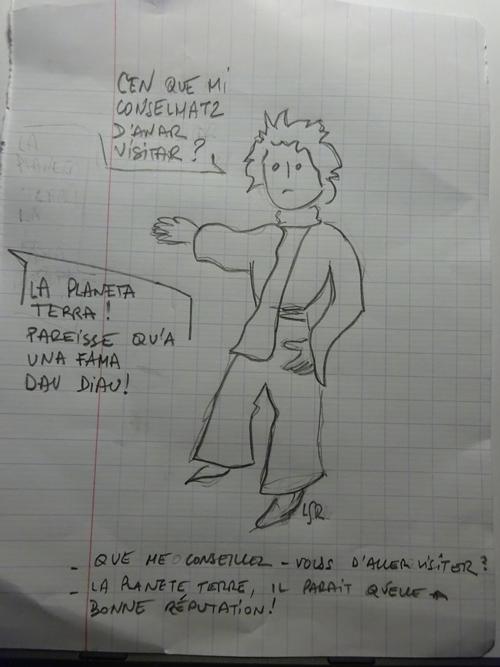 CEN QUE MI
CONSELMATZ
D'ANAR
VISITAR ?
LA PLANETA
TERRA !
PAREISSE QU'A
UNA FAMA
DAU DIAU!
- QUE ME CONSEILLEZ - VOUS D'ALLER VISITER?
- LA PLANÈTE TERRE, IL PARAIT QU'ELLE A
BONNE RÉPUTATION!